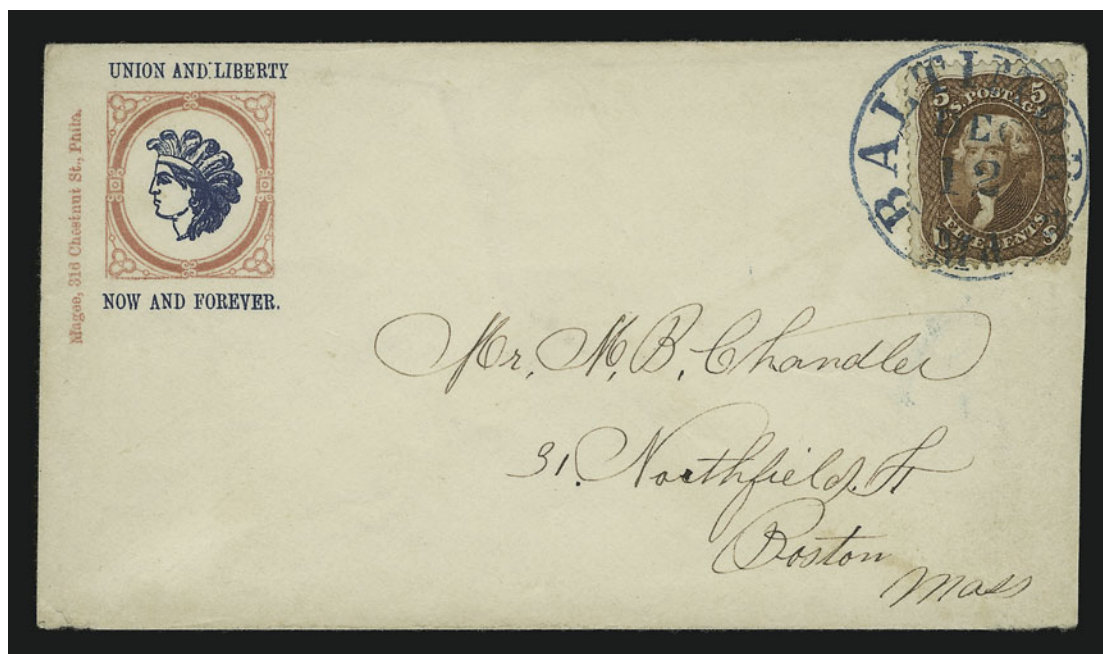 UNION AND LIBERTY
Magee, 316 Chestnut St., Phila.
NOW AND FOREVER.
BALTIMORE
DEC
12
Md.
5 5
U.S. POSTAGE
FIVE CENTS
U S
Mr. M. B. Chandler
31. Northfield. St
Boston
Mass